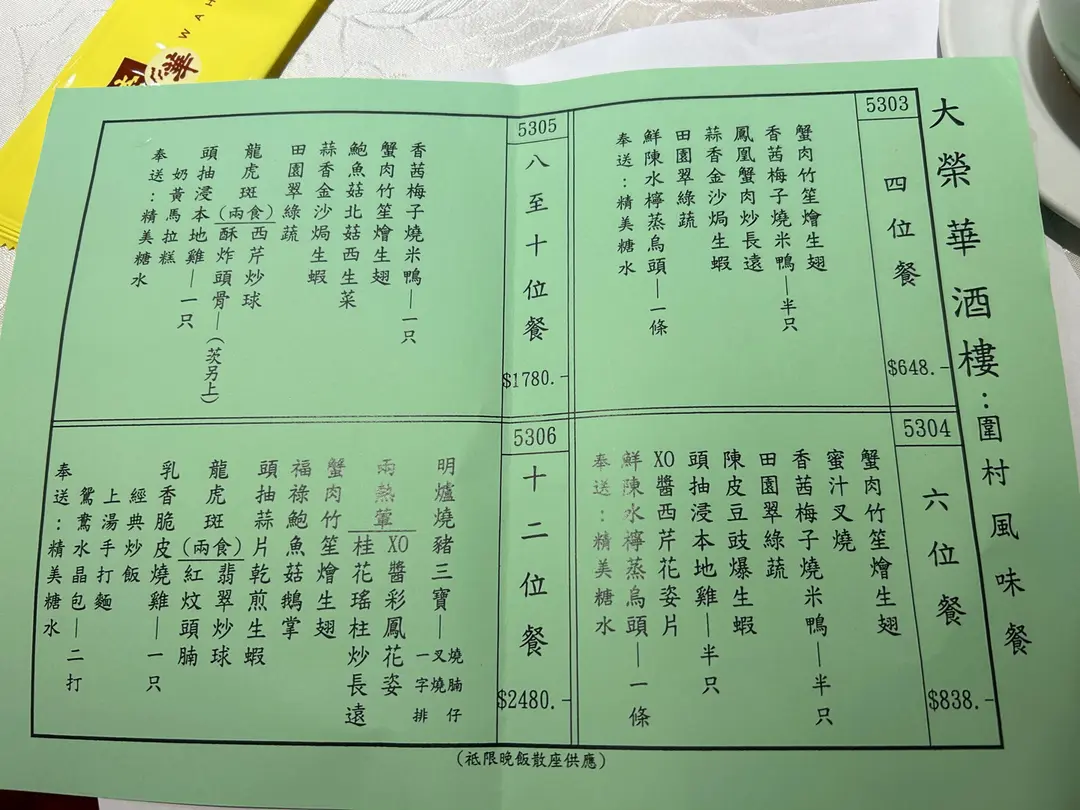 大榮華酒樓:圍村風味餐
5303
四位餐
$648.-
蟹肉竹笙燴生翅
香茜梅子燒米鴨—半只
鳳凰蟹肉炒長遠
蒜香金沙焗生蝦
田園翠綠蔬
鮮陳水檸蒸烏頭—一條
奉送:精美糖水
5304
六位餐
$838.-
蟹肉竹笙燴生翅
蜜汁叉燒
香茜梅子燒米鴨—半只
田園翠綠蔬
陳皮豆豉爆生蝦
頭抽浸本地雞—半只
XO醬西芹花姿片
鮮陳水檸蒸烏頭—一條
奉送:精美糖水
5305
八至十位餐
$1780.-
香茜梅子燒米鴨—一只
蟹肉竹笙燴生翅
鮑魚菇北菇西生菜
蒜香金沙焗生蝦
田園翠綠蔬
龍虎斑(兩食)西芹炒球
酥炸頭骨—(茨另上)
頭抽浸本地雞—一只
奶黃馬拉糕
奉送:精美糖水
5306
十二位餐
$2480.-
明爐燒豬三寶—燒腩仔
叉燒
一字排
兩熱葷XO醬彩鳳花姿
桂花瑤柱炒長遠
蟹肉竹笙燴生翅
福祿鮑魚菇鵝掌
頭抽蒜片乾煎生蝦
龍虎斑(兩食)翡翠炒球
紅炆頭腩
乳香脆皮燒雞—一只
經典炒飯
上湯手打麵
鴛鴦水晶包—二打
奉送:精美糖水
(祗限晚飯散座供應)
WAH